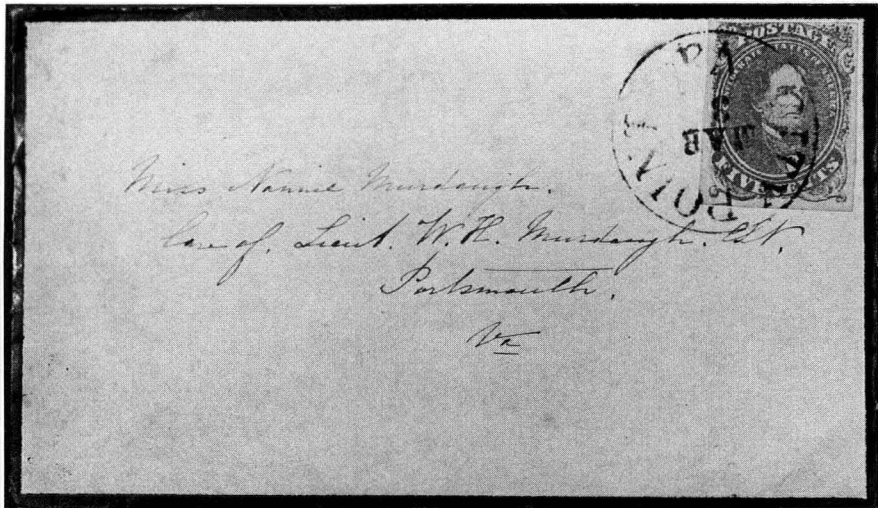 POSTAGE
FIVE CENTS
VA
MAR
POINT
Miss Nannie Murdaugh.
Care of. Lieut. W. H. Murdaugh. CSN.
Portsmouth.
Va